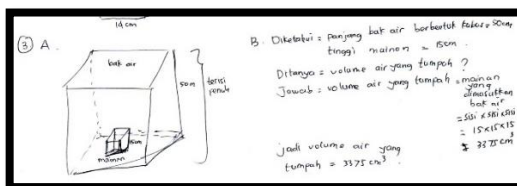 14 cm
③ A.
bak air
50m
terisi
penuh
15cm
mainan
B. Diketahui = panjang bak air berbentuk kubus = 50cm,
tinggi mainan = 15cm.
Ditanya = volume air yang tumpah ?
Jawab = volume air yang tumpah = mainan
yang
dimasukkan
bak air
= sisi x sisi x sisi
= 15x15x15
= 3375 cm³
jadi volume air yang
tumpah = 3375 cm³.